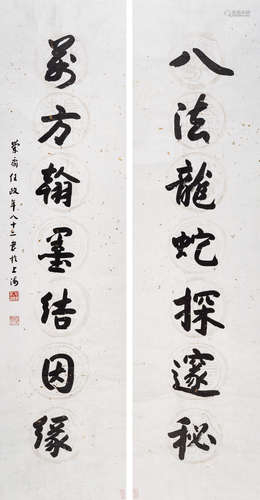 八法龍蛇探邃秘
萬方翰墨結因緣
蘭齋任政年八十二書於上海